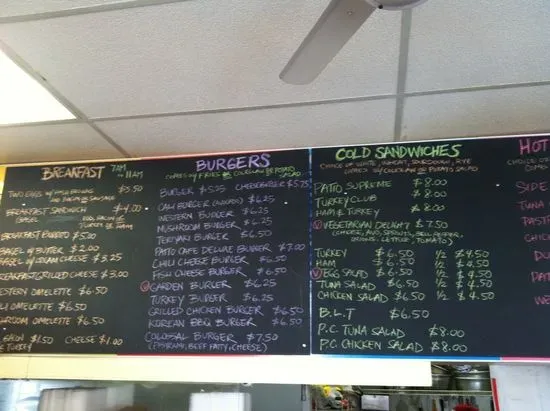 BREAKFAST 7AM TO 11AM
TWO EGGS W/ HASH BROWNS $5.50
AND BACON OR SAUSAGE
BREAKFAST SANDWICH $4.00
BAGEL, EGG, BACON OR
TURKEY OR HAM
BREAKFAST BURRITO $5.00
BAGEL W/ BUTTER $2.00
BAGEL W/ CREAM CHEESE $3.25
BREAKFAST GRILLED CHEESE $3.00
WESTERN OMELETTE $6.50
OMELETTE $6.50
MUSHROOM OMELETTE $6.50
BACON $1.50 CHEESE $1.00
TURKEY
BURGERS
COMES W/ FRIES OR COLESLAW OR POTATO SALAD
BURGER $5.25 CHEESEBURGER $5.75
CALI BURGER (AVOCADO) $6.25
WESTERN BURGER $6.25
MUSHROOM BURGER $6.25
TERIYAKI BURGER $6.50
PATIO CAFE DELUXE BURGER $7.00
CHILI CHEESE BURGER $6.50
FISH CHEESE BURGER $6.50
V GARDEN BURGER $6.25
TURKEY BURGER $6.25
GRILLED CHICKEN BURGER $6.50
KOREAN BBQ BURGER $6.50
COLOSSAL BURGER $7.50
(PASTRAMI, BEEF PATTY, CHEESE)
COLD SANDWICHES
CHOICE OF WHITE, WHEAT, SOURDOUGH, RYE
COMES W/ COLESLAW OR POTATO SALAD
PATIO SUPREME $8.00
TURKEY CLUB $8.00
HAM & TURKEY $8.00
V VEGETARIAN DELIGHT $7.50
(CHEESE, AVO, SPROUTS, BELL PEPPER,
ONIONS, LETTUCE, TOMATO)
TURKEY $6.50 1/2 $4.50
HAM $6.50 1/2 $4.50
V EGG SALAD $6.50 1/2 $4.50
TUNA SALAD $6.50 1/2 $4.50
CHICKEN SALAD $6.50 1/2 $4.50
B.L.T $6.50
P.C. TUNA SALAD $8.00
P.C. CHICKEN SALAD $8.00
HOT
CHOICE OF
COMES
SIDE
TUNA
PAST
CHICK
DU
PAT
WE